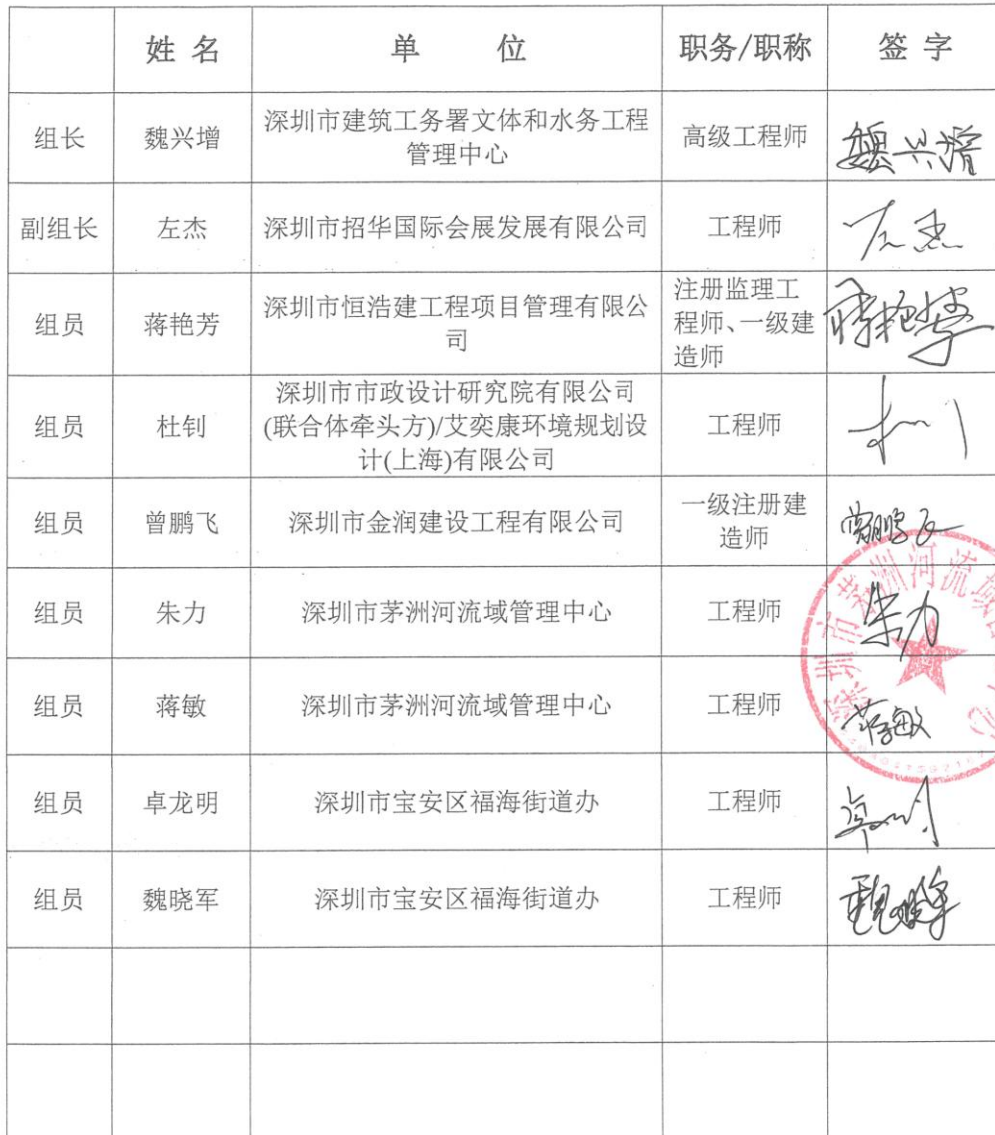 姓 名 单 位 职务/职称 签 字
组长 魏兴增 深圳市建筑工务署文体和水务工程
管理中心 高级工程师 魏兴增
副组长 左杰 深圳市招华国际会展发展有限公司 工程师 左杰
组员 蒋艳芳 深圳市恒浩建工程项目管理有限公
司 注册监理工
程师、一级建
造师
组员 杜钊 深圳市市政设计研究院有限公司
(联合体牵头方)/艾奕康环境规划设
计(上海)有限公司 工程师
组员 曾鹏飞 深圳市金润建设工程有限公司 一级注册建
造师 曾鹏飞
组员 朱力 深圳市茅洲河流域管理中心 工程师 朱力
组员 蒋敏 深圳市茅洲河流域管理中心 工程师 蒋敏
组员 卓龙明 深圳市宝安区福海街道办 工程师
组员 魏晓军 深圳市宝安区福海街道办 工程师 魏晓军
深圳市茅洲河流域